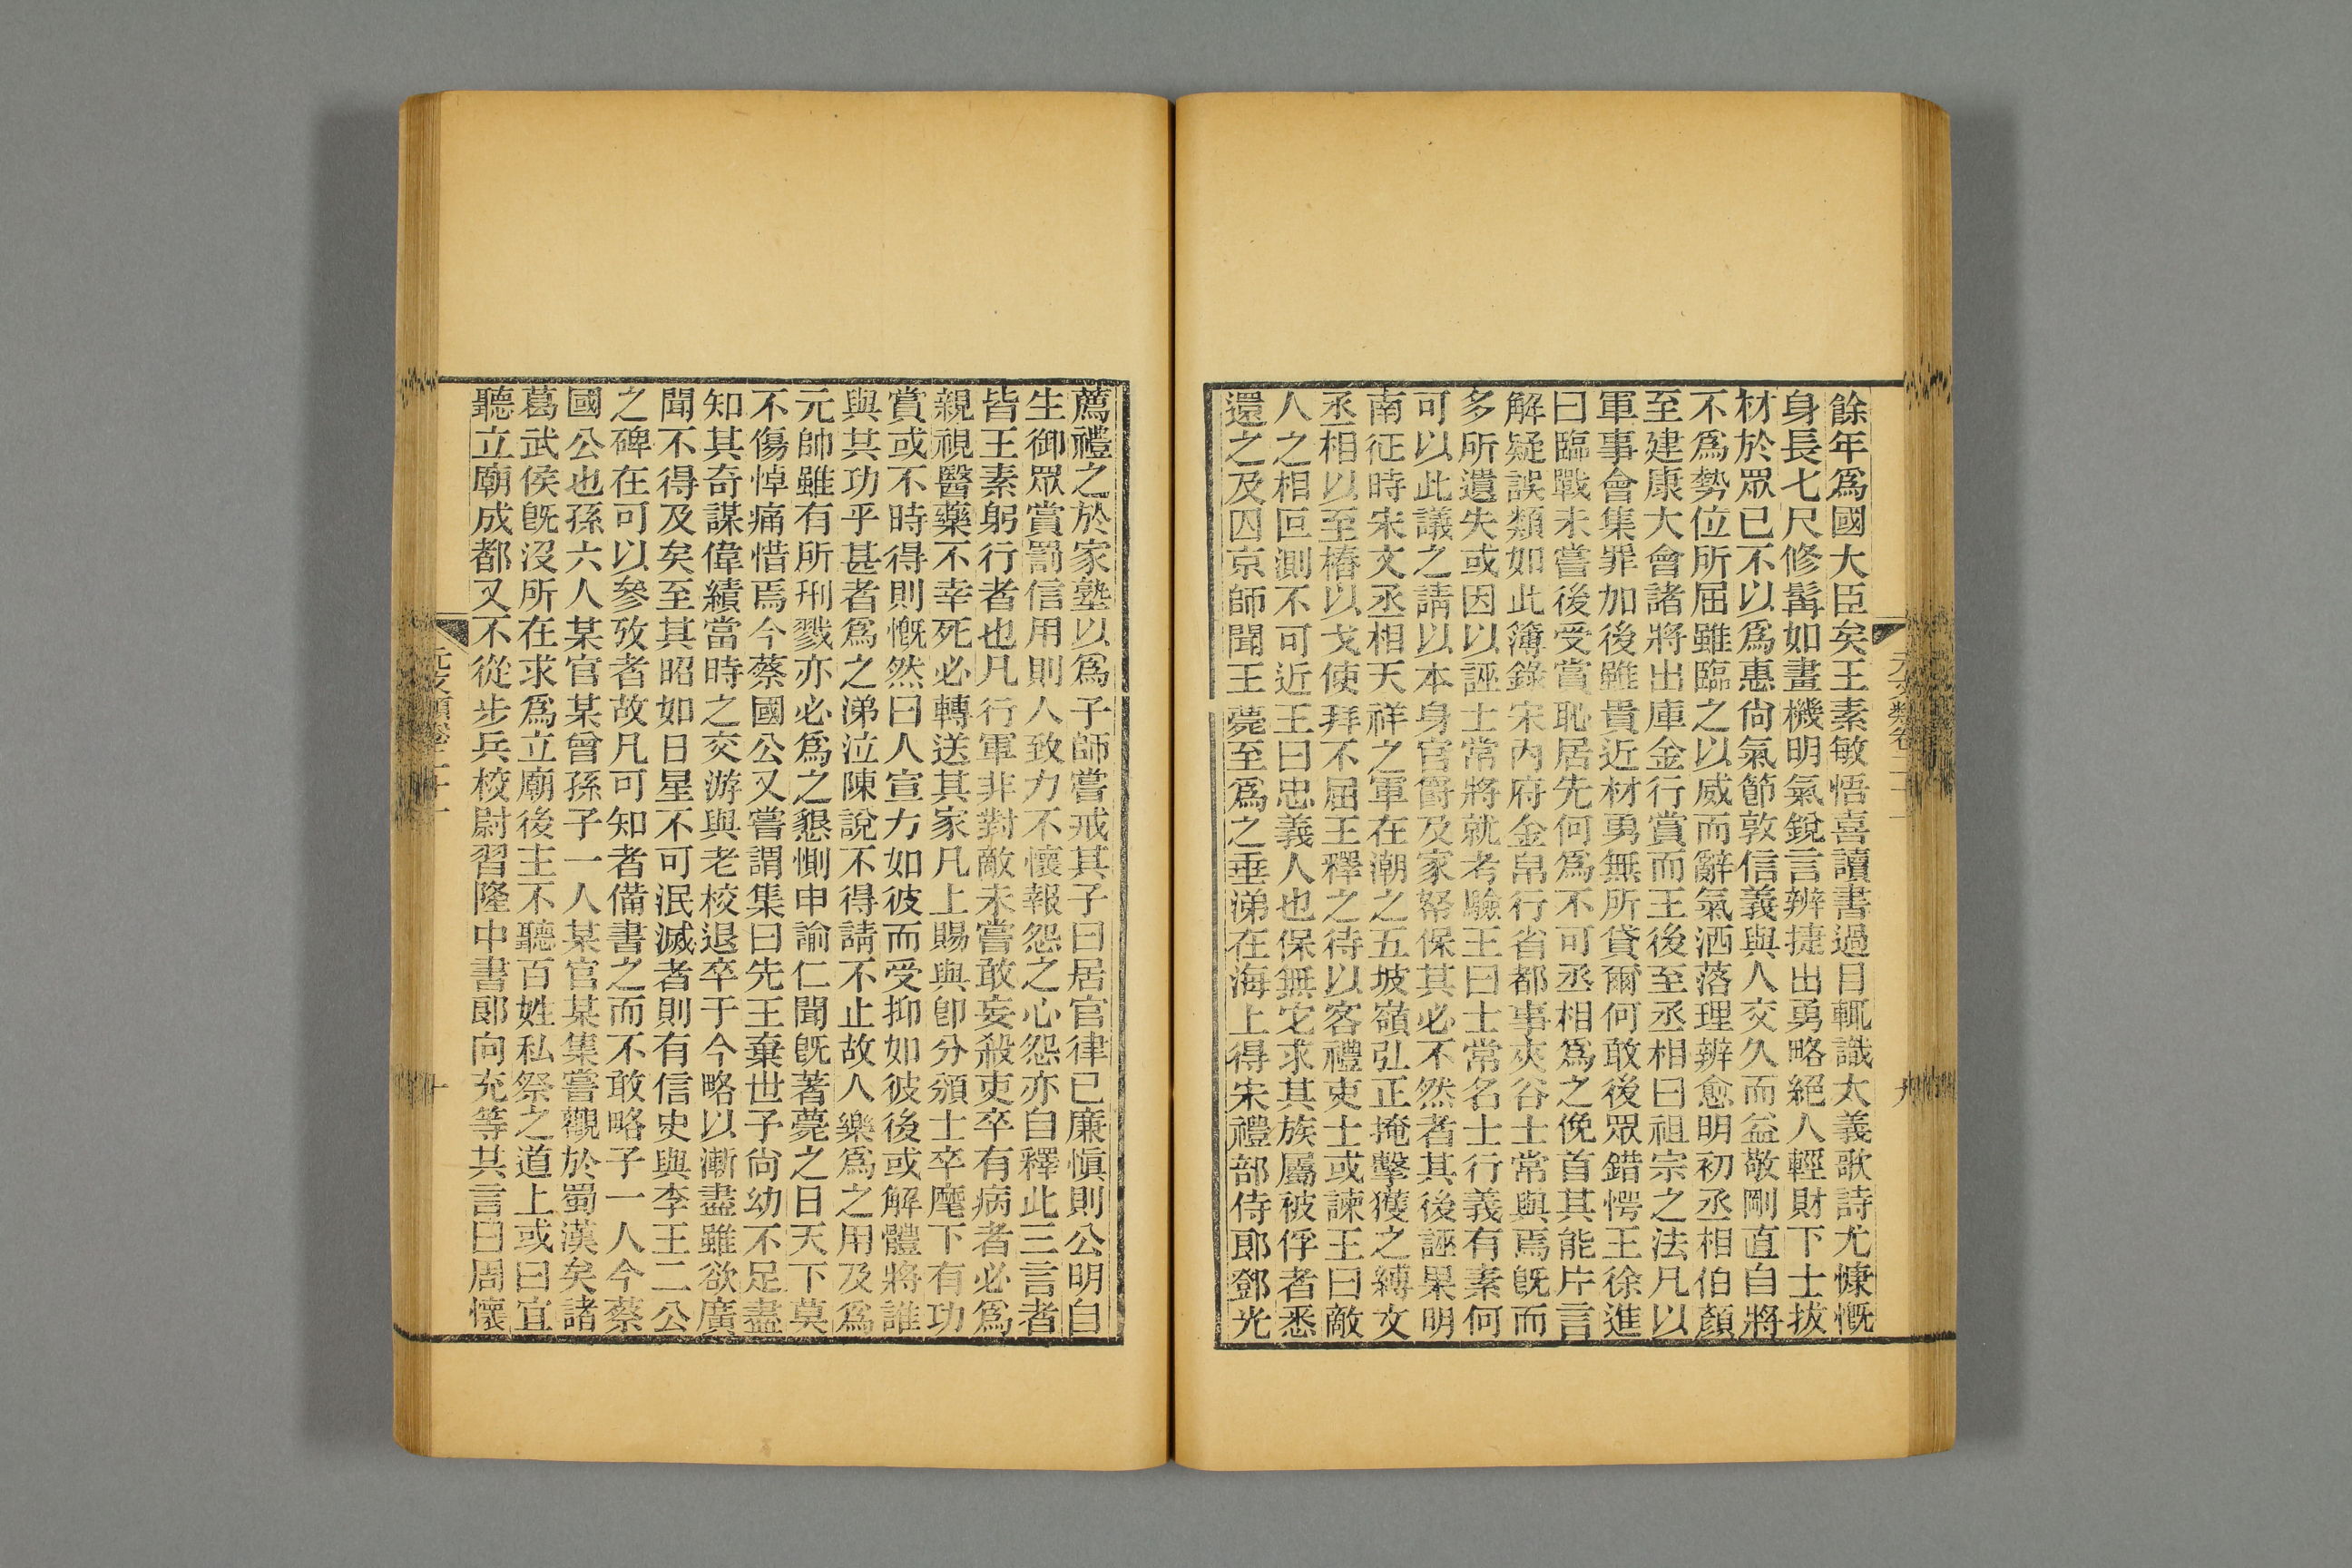 餘年爲國大臣矣王素敏悟喜讀書過目輒識大義歌詩尤慷慨
身長七尺修髯如畫機明氣銳言辨捷出勇略絕人輕財下士拔
材於眾已不以爲惠尙氣節敦信義與人交久而益敬剛直自將
不爲勢位所屈雖臨之以威而辭氣洒落理辨愈明初丞相伯顏
至建康大會諸將出庫金行賞而王後至丞相曰祖宗之法凡以
軍事會集罪加後雖貴近材勇無所貸爾何敢後眾錯愕王徐進
曰臨戰未嘗後受賞恥居先何爲不可丞相爲之俛首其能片言
解疑誤類如此簿錄宋內府金帛行省都事夾谷士常與焉旣而
多所遺失或因以誣士常將就考驗王曰士常名士行義有素何
可以此議之請以本身官爵及家帑保其必不然者其後誣果明
南征時宋文丞相天祥之軍在潮之五坡嶺弘正掩擊獲之縛文
丞相以至樁以戈使拜不屈王釋之待以客禮吏士或諫王曰敵
人之相叵測不可近王曰忠義人也保無它求其族屬被俘者悉
還之及囚京師聞王薨至爲之垂涕在海上得宋禮部侍郞鄧光
元文類卷二十一
九
薦禮之於家塾以爲子師嘗戒其子曰居官律已廉愼則公明自
生御眾賞罰信用則人致力不懷報怨之心怨亦自釋此三言者
皆王素躬行者也凡行軍非對敵未嘗敢妄殺吏卒有病者必爲
親視醫藥不幸死必轉送其家凡上賜與卽分頒士卒麾下有功
賞或不時得則慨然曰人宣力如彼而受抑如彼後或解體將誰
與其功乎甚者爲之涕泣陳說不得請不止故人樂爲之用及爲
元帥雖有所刑戮亦必爲之懇惻申諭仁聞旣著薨之日天下莫
不傷悼痛惜焉今蔡國公又嘗謂集曰先王棄世子尙幼不足盡
知其奇謀偉績當時之交游與老校退卒于今略以漸盡雖欲廣
聞不得及矣至其昭如日星不可泯滅者則有信史與李王二公
之碑在可以參攷者故凡可知者備書之而不敢略子一人今蔡
國公也孫六人某官某曾孫子一人某官某集嘗觀於蜀漢矣諸
葛武侯旣沒所在求爲立廟後主不聽百姓私祭之道上或曰宜
聽立廟成都又不從步兵校尉習隆中書郞向充等共言曰周懷
元文類卷二十一
十